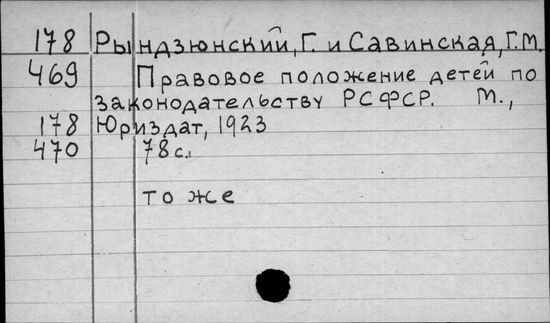 178 Рындзюнский, Г. и Савинская, Г.М.
469 Правовое положение детей по
законодательству РСФСР. М.,
178 Юриздат, 1923
470 78 с.
то же